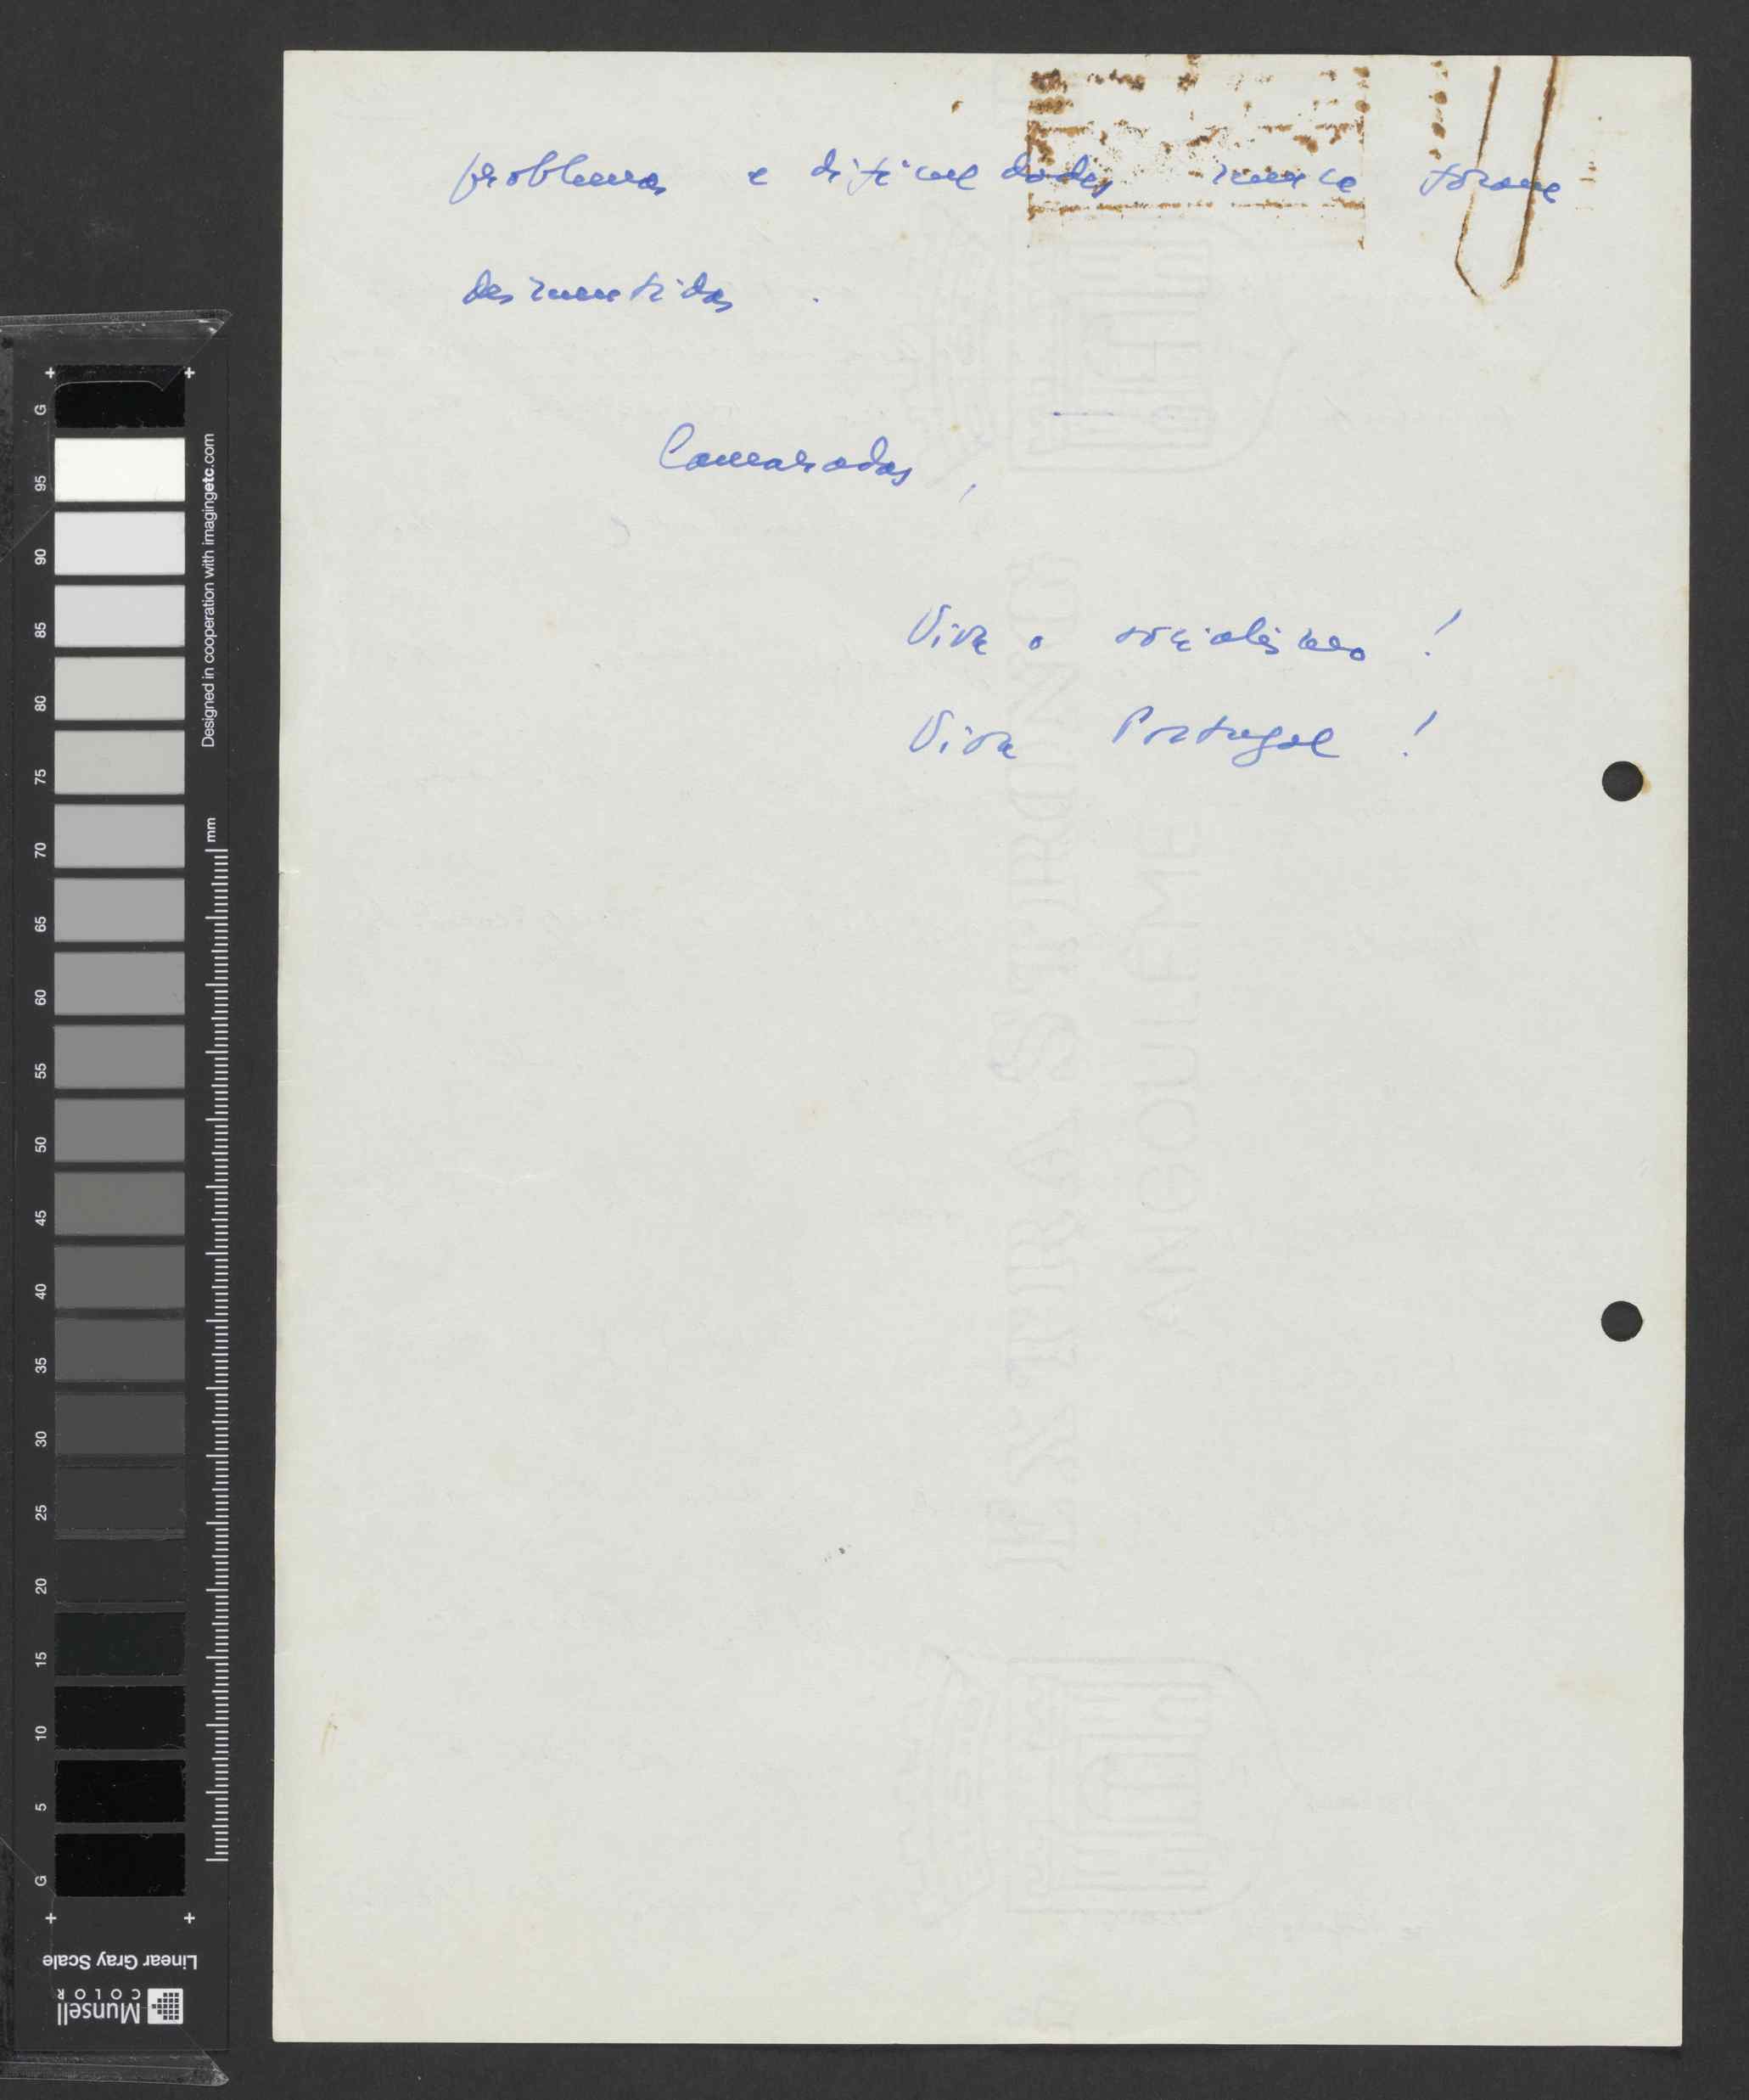 problemas e dificuldades nunca foram
desmentidas.
Camaradas,
Viva o socialismo!
Viva Portugal!
EXTRA STRONG
ANGOULEME
G
95
90
85
80
75
70
65
60
55
50
45
40
35
30
25
20
15
10
5
G
Designed in cooperation with imagingetc.com
mm
Linear Gray Scale
Munsell
COLOR